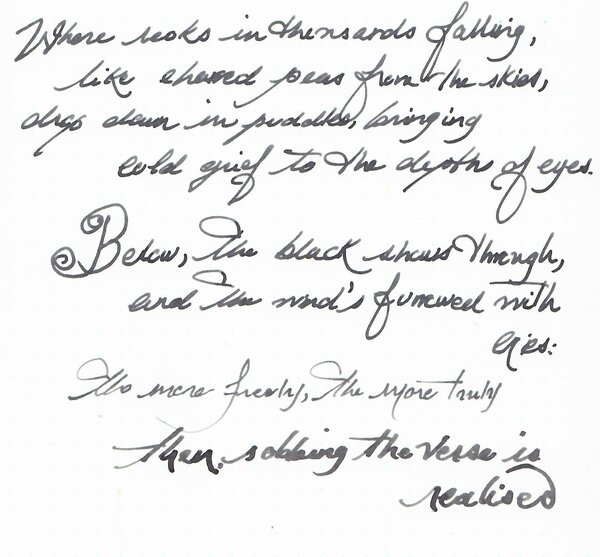 Where rooks in thousands falling,
like charred pears from the skies,
drop down in puddles, bringing
cold grief to the depths of eyes.
Below, the black shows through,
and the wind's furrowed with
cries:
the more freely, the more truly
then, sobbing the verse is
realised